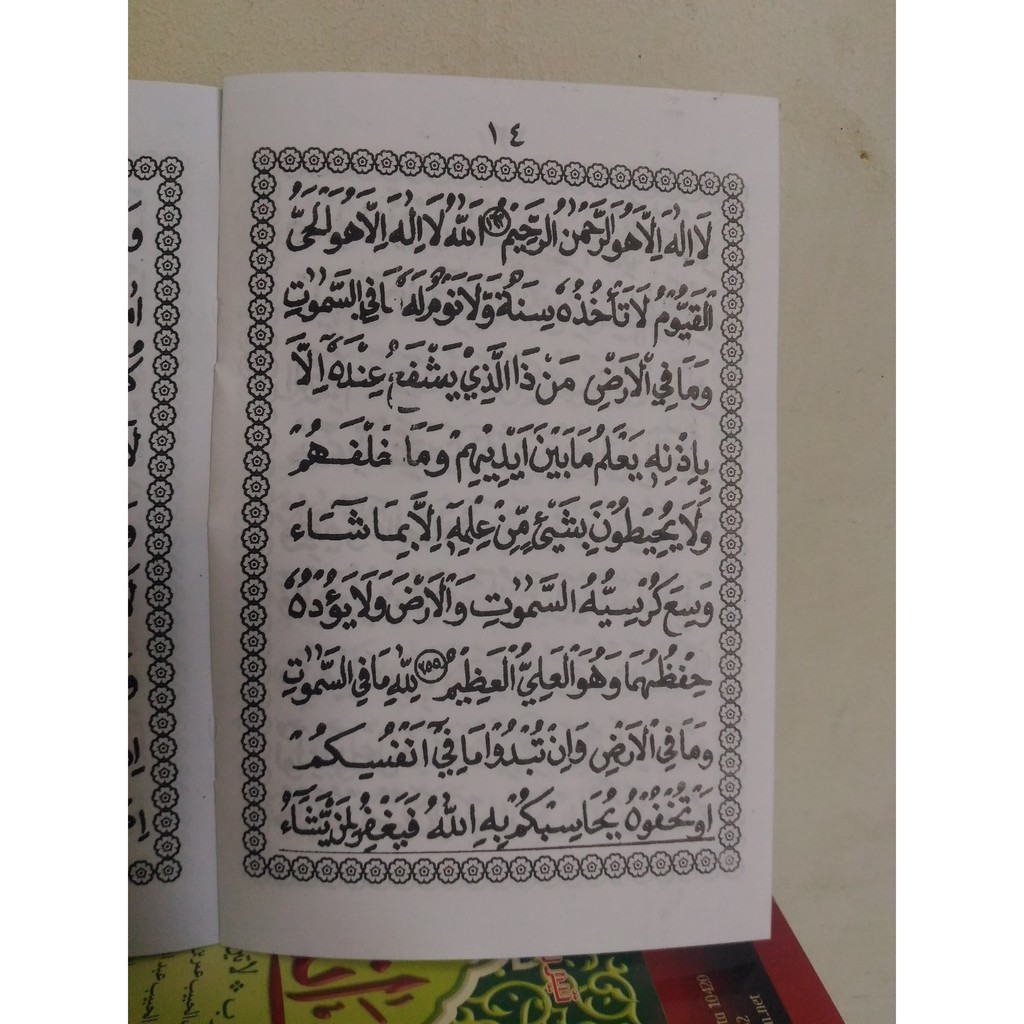 ١٤
لَا اِلٰهَ اِلَّا هُوَ الرَّحْمٰنُ الرَّحِيْمُ ۝ اَللّٰهُ لَا اِلٰهَ اِلَّا هُوَ الْحَيُّ
الْقَيُّوْمُ لَا تَأْخُذُهٗ سِنَةٌ وَّلَا نَوْمٌ لَهٗ مَا فِي السَّمٰوٰتِ
وَمَا فِي الْاَرْضِ مَنْ ذَا الَّذِيْ يَشْفَعُ عِنْدَهٗ اِلَّا
بِاِذْنِهٖ يَعْلَمُ مَا بَيْنَ اَيْدِيْهِمْ وَمَا خَلْفَهُمْ
وَلَا يُحِيْطُوْنَ بِشَيْئٍ مِّنْ عِلْمِهٖ اِلَّا بِمَا شَاءَ
وَسِعَ كُرْسِيُّهُ السَّمٰوٰتِ وَالْاَرْضَ وَلَا يَؤُدُهٗ
حِفْظُهُمَا وَهُوَ الْعَلِيُّ الْعَظِيْمُ ٢٥٥ لِلّٰهِ مَا فِي السَّمٰوٰتِ
وَمَا فِي الْاَرْضِ وَاِنْ تُبْدُوْا مَا فِيْ اَنْفُسِكُمْ
اَوْ تُخْفُوْهُ يُحَاسِبْكُمْ بِهِ اللّٰهُ فَيَغْفِرُ لِمَنْ يَّشَاءُ
10420